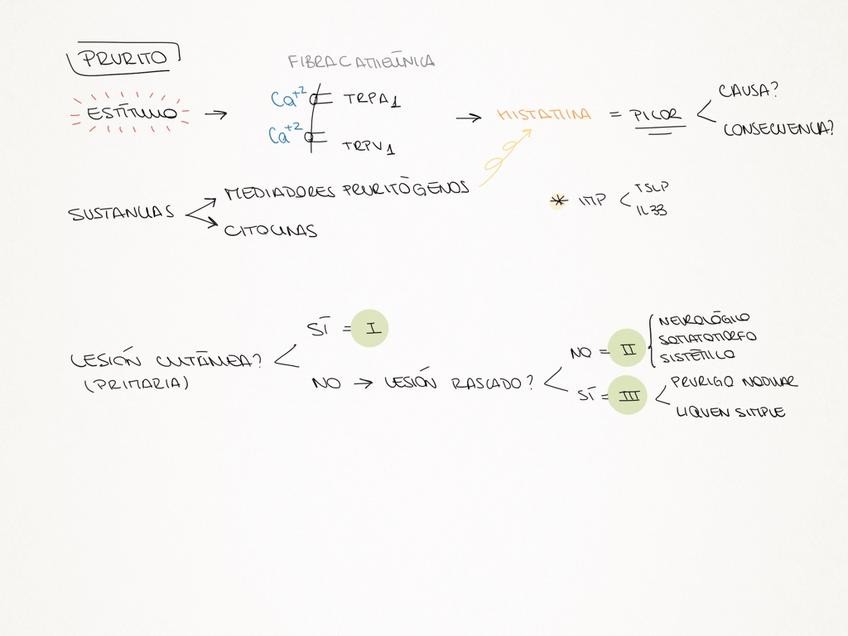 PRURITO
FIBRA C AMIELÍNICA
ESTÍMULO → Ca+2 TRPA1 → HISTAMINA = PICOR < CAUSA?
Ca+2 TRPV1 CONSECUENCIA?
SUSTANCIAS MEDIADORES PRURITÓGENOS
CITOCINAS
* IMP < TSLP
IL33
LESIÓN CUTÁNEA?
(PRIMARIA)
SÍ = I
NO → LESIÓN RASCADO?
NO = II
NEUROLÓGICO
SOMATOMORFO
SISTÉMICO
SÍ = III
PRURIGO NODULAR
LIQUEN SIMPLE